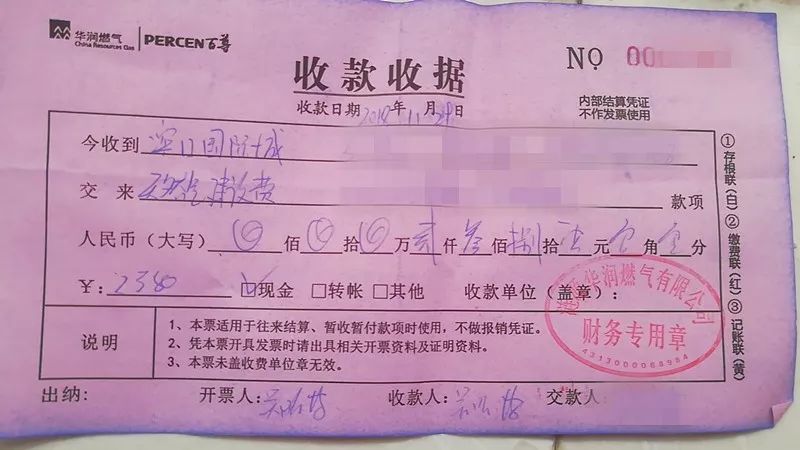 华润燃气 PERCEN百尊
China Resources Gas
收款收据
NO 00
内部结算凭证
不作发票使用
收款日期 2018年11月29日
今收到 国际城
交来 天然气建设费 款项
人民币(大写) 佰 拾 万 贰仟叁佰捌拾 元 角 分
¥:2380 现金 □转帐 □其他 收款单位(盖章):
华润燃气有限公司
财务专用章
4313000068984
说明
1、本票适用于往来结算、暂收暂付款项时使用,不做报销凭证。
2、凭本票开具发票时请出具相关开票资料及证明资料。
3、本票未盖收费单位章无效。
出纳: 开票人:吴 收款人:吴 交款人
①存根联(白)②缴费联(红)③记账联(黄)